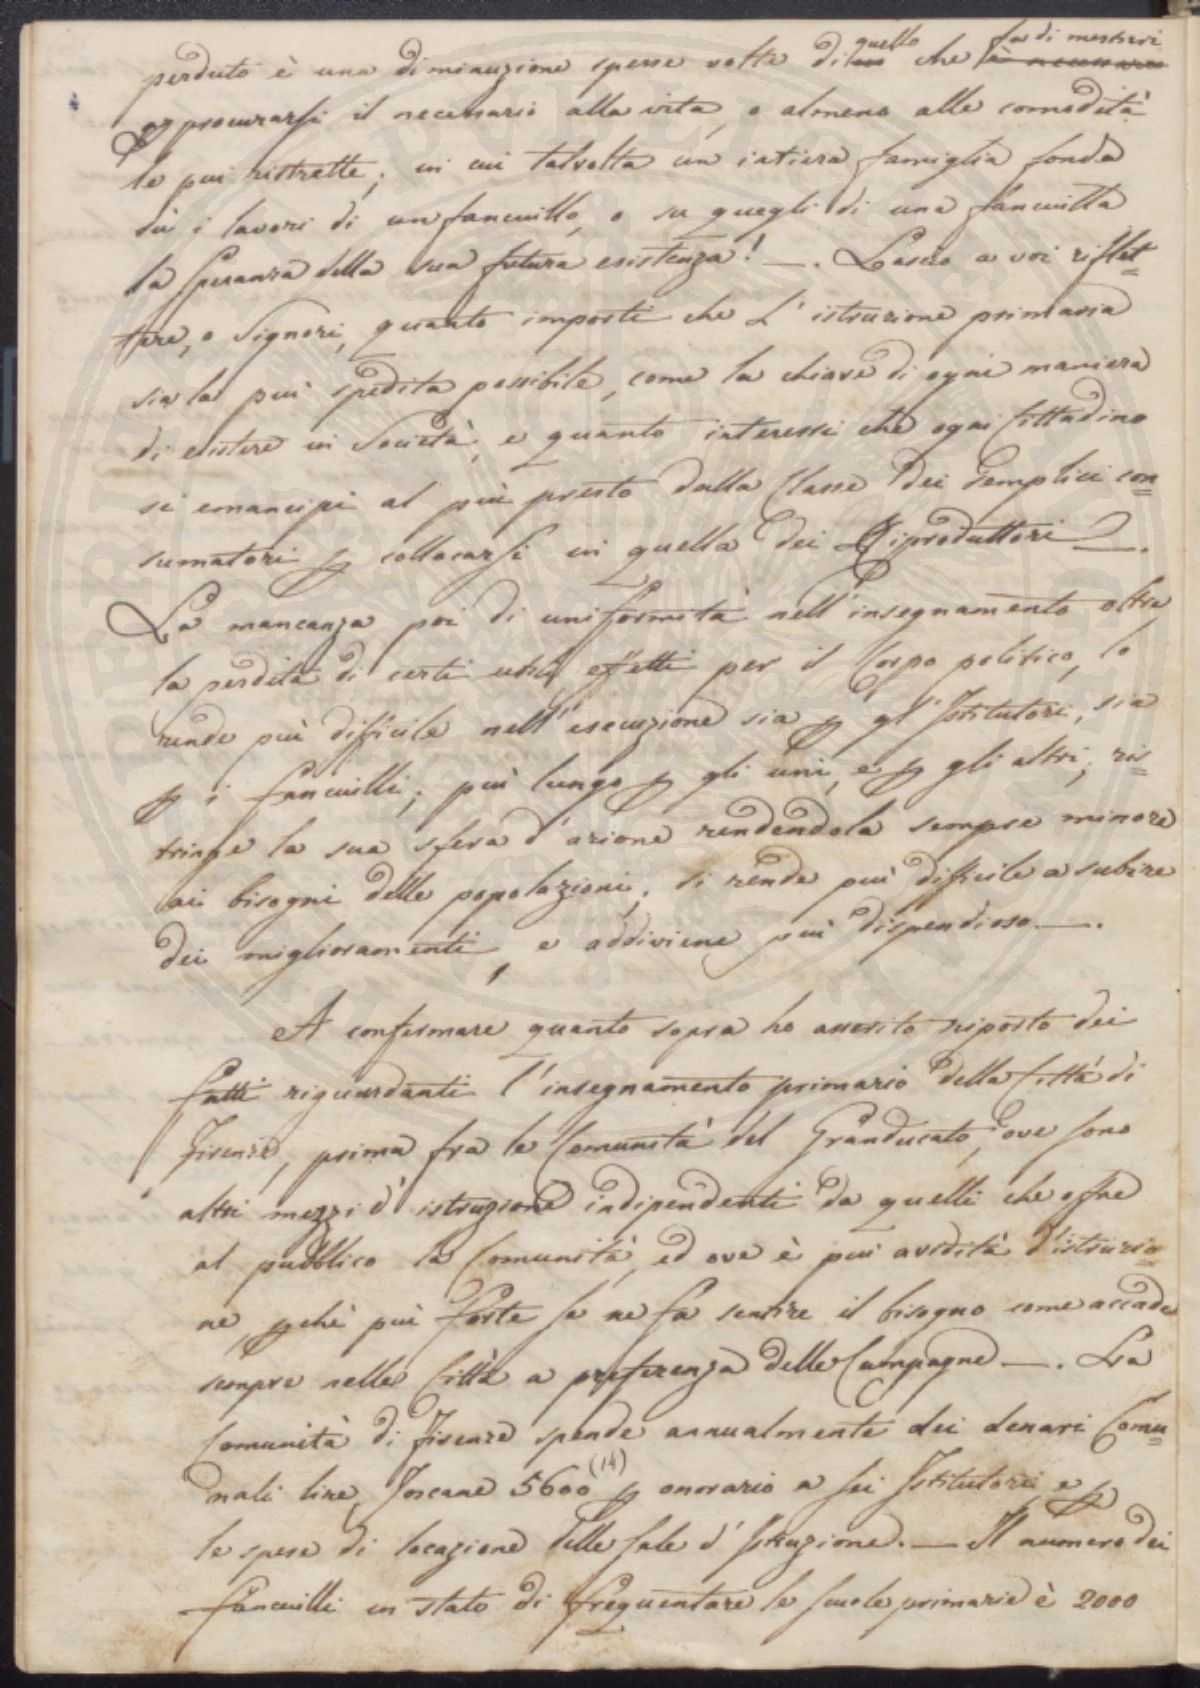 perduto è una diminuzione spesse volte di quello che fa di mestieri
a procurarsi il necessario alla vita, o almeno alle comodità
le piu ristrette; in cui talvolta un'intiera famiglia fonda
su i lavori di un fanciullo, o su quegli di una fanciulla
la speranza della sua futura esistenza! —. Lascio a voi riflet=
tere, o Signori, quanto importi che l'istruzione primaria
sia la piu spedita possibile, come la chiave di ogni maniera
di esistere in Società, e quanto interessi che ogni Cittadino
si emancipi al più presto dalla Classe dei semplici con=
sumatori p collocarsi in quella dei Riproduttori —.
La mancanza poi di uniformità nell'insegnamento oltre
la perdita di certi utili effetti per il Corpo politico, lo
rende più difficile nell'esecuzione sia p gl'Istitutori, sia
p i fanciulli; più lungo p gli uni, e p gli altri; ris=
tringe la sua sfera d'azione rendendola sempre minore
ai bisogni delle popolazioni; si rende più difficile a subire
dei miglioramenti, e addiviene più dispendioso —.
A confermare quanto sopra ho asserito riporto dei
fatti riguardanti l'insegnamento primario della Città di
Firenze, prima fra le Comunità del Granducato, ove sono
altri mezzi d'istruzione indipendenti da quelli che offre
al pubblico la Comunità, ed ove è piu avidità d'istruzio=
ne, pchè più forte se ne fa sentire il bisogno come accade
sempre nelle Città a preferenza delle Campagne —. La
Comunità di Firenze spende annualmente dei denari Comu=
nali lire Toscane 5600 (14) p onorario a sei Istitutori, e p
le spese di locazione delle sale d'Istruzione. — Il numero dei
fanciulli in stato di frequentare le scuole primarie è 2000